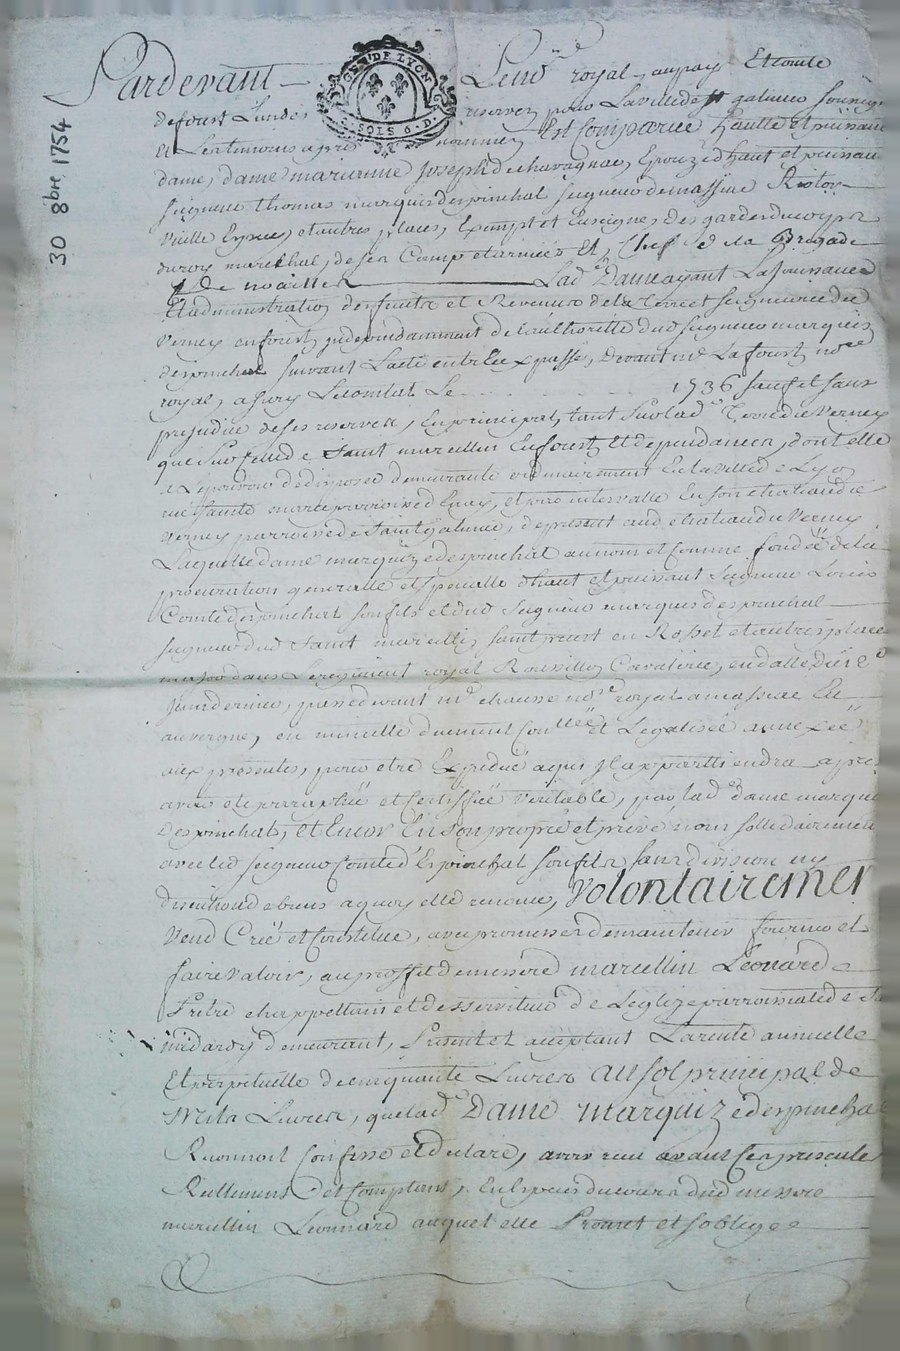 30 8bre 1754
GEN. DE LYON
2. SOLS 6. D.
Pardevant Le nore royal au pays Et Comte
de forest Lundes reservez pour La ville de st galmier soussigné
Et Les temoins apres nommez Est Comparüe haute et puissante
dame, dame marianne Joseph de chavagnac, Epouze d haut et puissant
seigneur thomas marquis despinchal seigneur de massiac
vieille Espesse, et autres places, Exempt et Enseigne des gardes du corps
du roy marechal de ses Camps et armées Et Chef de la Brigade
de noailles Lade Dame ayant La Jouissance
Et administration des fruits et Revenus de la Terre et seigneurie du
Verney en forest independamment de l'authorité dud seigneur marquis
despinchal suivant L'acte entr'Eux passé, devant me La forest nore
royal, a sury Lecomtal Le 1736 sauf et sans
prejudice de ses reserves, En principal, tant sur lade Terre du Verney
que sur celle de saint marcellin En forest Et dependances, dont elle
a Le pouvoir de disposer demeurante ordinairement En la ville de Lyon
rue sainte marie parroisse d'Enay, et par intervalle En son chateau du
Verney parroisse de saint Galmier, de present aud chateau du Verney
Laquelle dame marquize despinchal au nom et comme fondée de la
procuration generalle et specialle d haut et puissant seigneur Louis
Comte d'espinchal son fils et dud seigneur marquis despinchal
seigneur dud saint marcellin, saint priest en Rosset et autres places
major dans Le regiment royal Roussillon Cavalerie, en datte du 12e
Juin dernier, passé devant me nore royal a massiac En
auvergne, en minutte duement Conllée et Legalisée annexée
aux presentes, pour etre Expediée a qui Il appartiendra apres
avoir eté paraphée et certiffiée veritable, par lade dame marquize
Despinchal, et Encor En son propre et privé nom sollidairement
avec led seigneur Comte d'Espinchal son fils sans division ny
discution de biens a quoy elle renonce, Volontairement
Vend Crée et Constitue, avec promesse de maintenir fournir et
faire valoir, au proffit de messire marcellin Leonard
Prêtre chappellain et desserviteur de L'eglize parroissiale de St
midard y demeurant, present et acceptant La rente annuelle
Et perpetuelle de cinquante Livres au sol principal de
Mile Livres, que lade Dame Marquize despinchal
Reconnoit Confesse et declare, avoir reçu avant Ces presentes
Reellement et Comptant, En Especes du cours dud messire
marcellin Leonnard auquel elle Promet et soblige